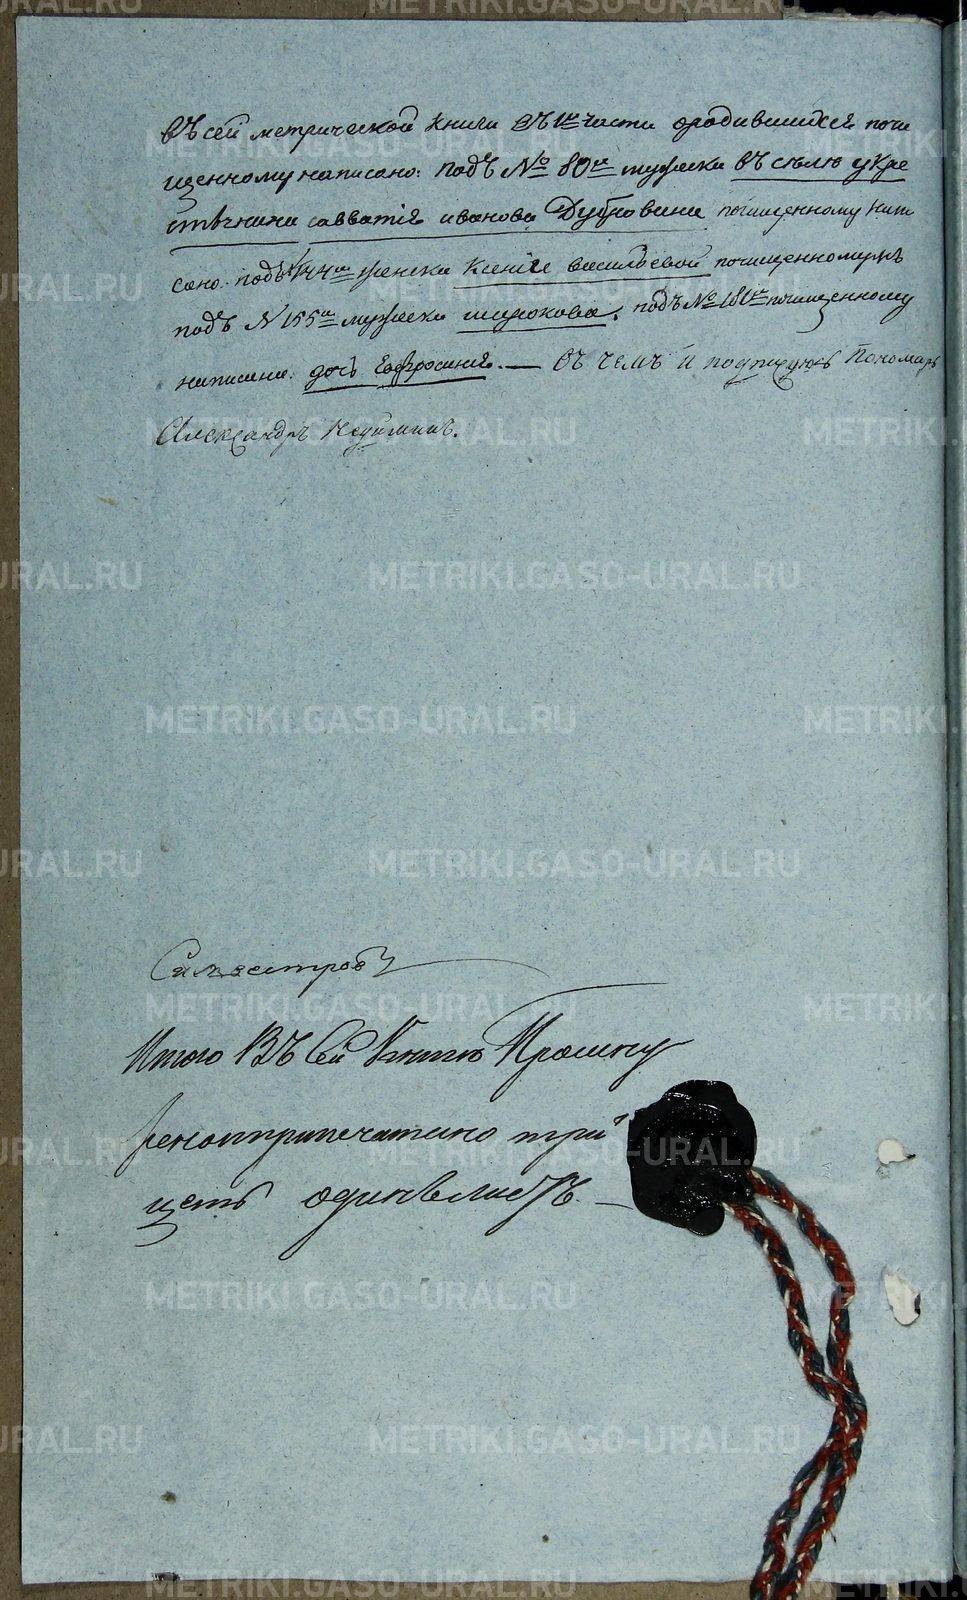 Въ сей метрической книги въ 1й части ородившихся почи
щенному написано: подъ № 80м мужеска въ селѣ у кре
стьянина савватія иванова Дубровина почищенному напи
сано. подъ № 144м женска Ксенія васильевой почищенному
подъ № 155м мужеска широкова, подъ № 181м почищенному
написано: дочь Евфросинія. — въ чемъ и подпишусь Пономарь
Александръ
Силвестровъ
Итого Въ Сей Книгѣ Прошну
рено иприпечатано три
цать одинъ листъ. —
METRIKI.GASO-URAL.RU